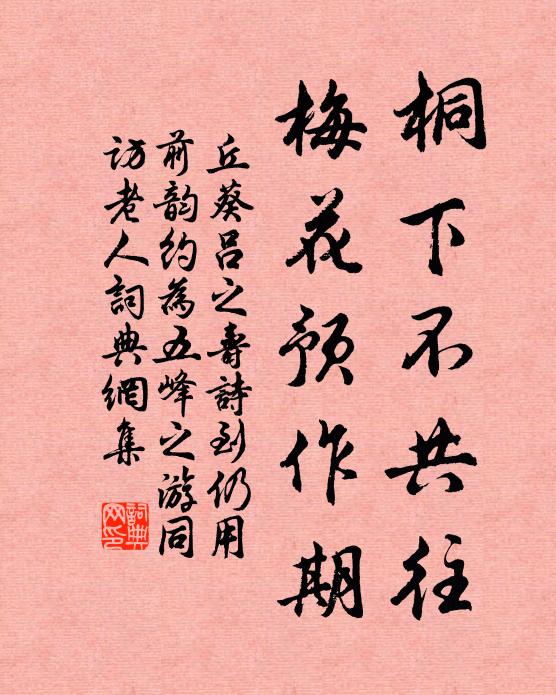 桐下不共往
梅花預作期
丘葵吕之壽詩到仍用
前韵約為五峰之游同
访老人詞典網集
詞典网印